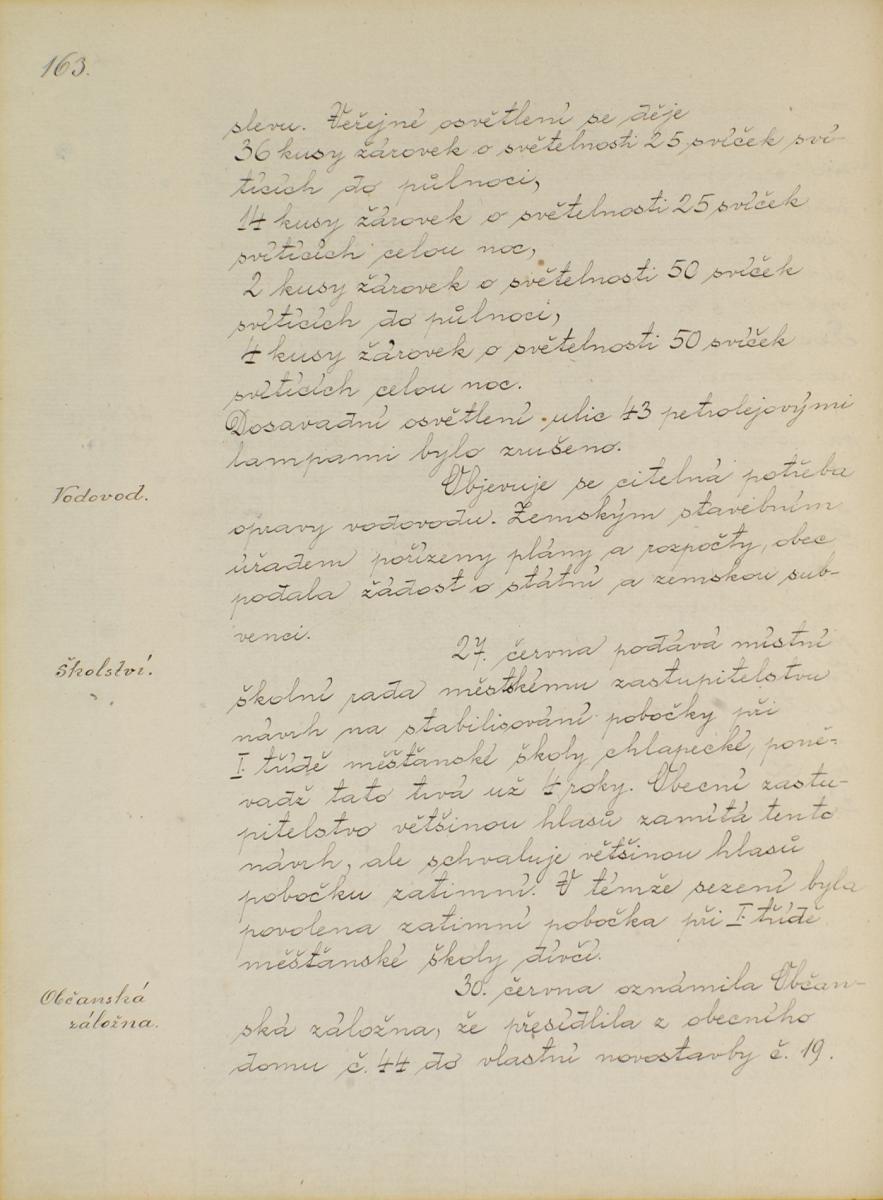 163.
slevu. Veřejné osvětlení se děje
36 kusy žárovek o světelnosti 25 svíček sví-
tících do půlnoci,
14 kusy žárovek o světelnosti 25 svíček
svítících celou noc,
2 kusy žárovek o světelnosti 50 svíček
svítících do půlnoci,
4 kusy žárovek o světelnosti 50 svíček
svítících celou noc.
Dosavadní osvětlení ulic 43 petrolejovými
lampami bylo zrušeno.
Vodovod.
Objevuje se citelná potřeba
opravy vodovodu. Zemským stavebním
úřadem pořízeny plány a rozpočty, obec
podala žádost o státní a zemskou sub-
venci.
Školství.
27. června podává místní
školní rada městskému zastupitelstvu
návrh na stabilisování pobočky při
I. třídě měšťanské školy chlapecké, poně-
vadž tato trvá už 4 roky. Obecní zastu-
pitelstvo většinou hlasů zamítá tento
návrh, ale schvaluje většinou hlasů
pobočku zatimní. V témže sezení byla
povolena zatimní pobočka při I. třídě
měšťanské školy dívčí.
Občanská
záložna.
30. června oznámila Občan-
ská záložna, že přesídlila z obecního
domu č. 44 do vlastní novostavby č. 19.